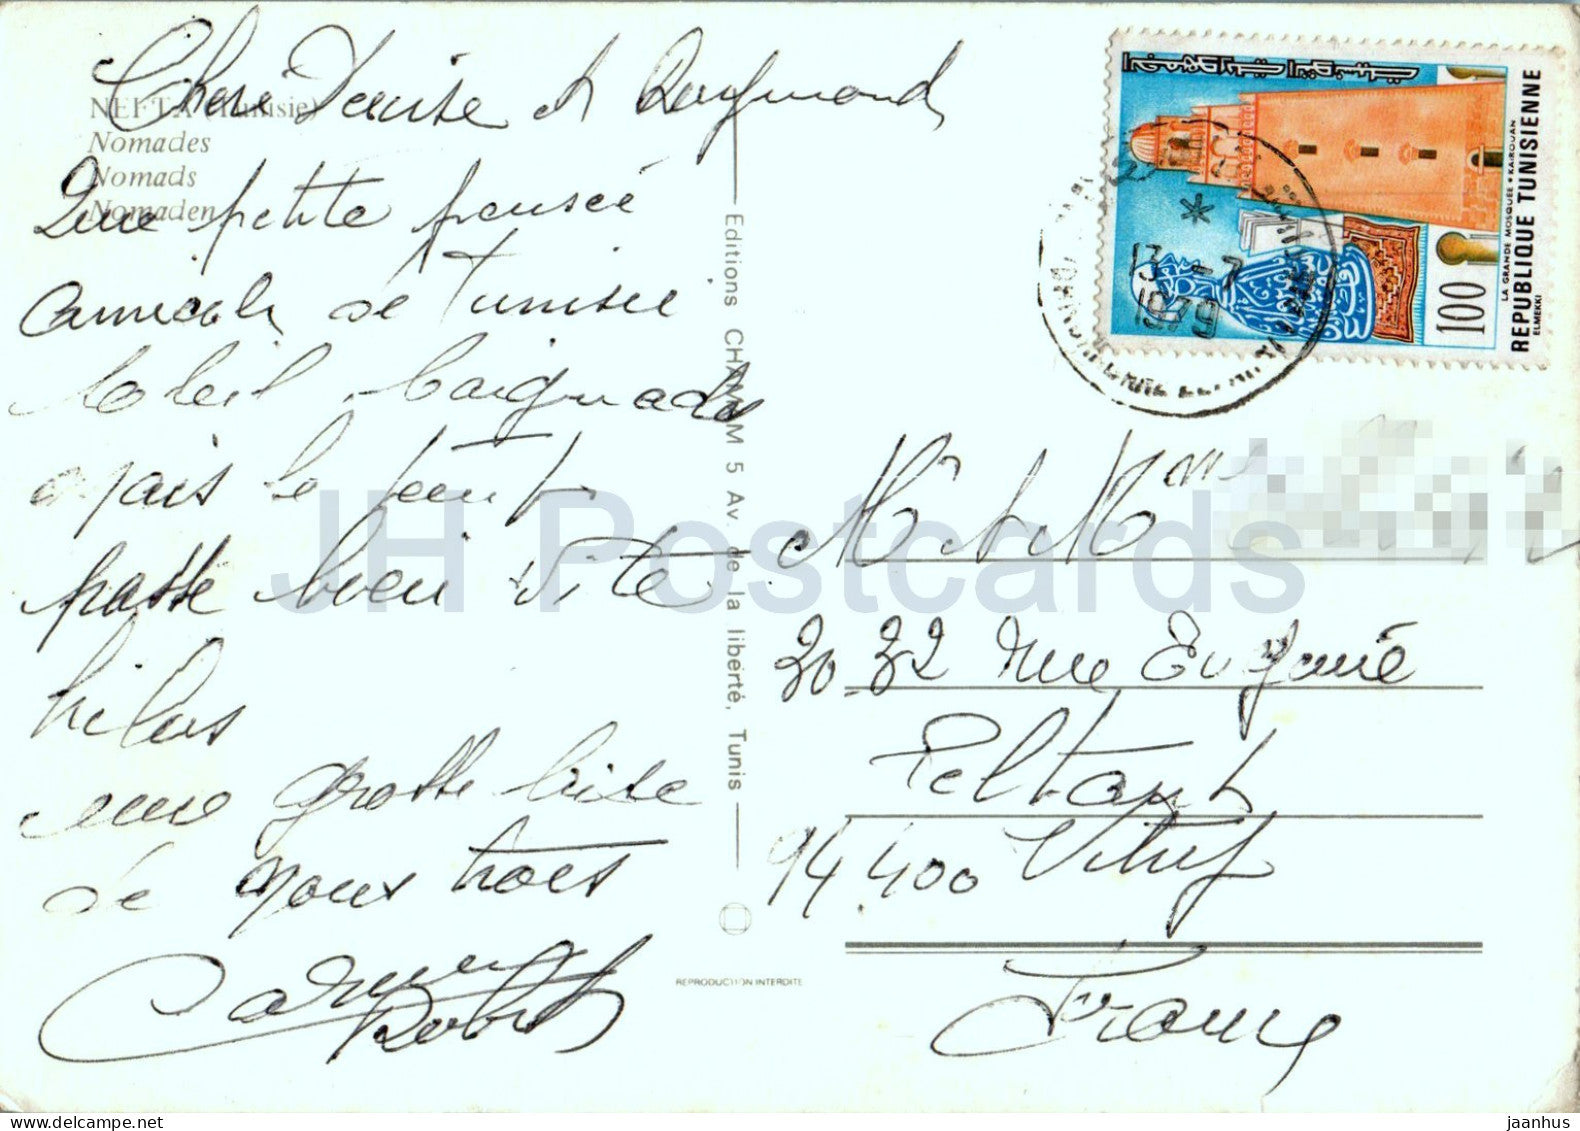 NEFTA (Tunisie)
Nomades
Nomads
Nomaden
Chers Denise et Raymond
Une petite pensée
amicale de Tunisie
Soleil baignades
mais le temps
passe bien vite
hélas
une grosse bise
de nous trois
Carmen
Robert
Editions CHAMAM 5 Av. de la liberté, Tunis
REPRODUCTION INTERDITE
13 -7
1979
100
LA GRANDE MOSQUEE * KAIROUAN
REPUBLIQUE TUNISIENNE
ELMEKKI
الجمهورية التونسية
Mr et Mme
30.32 rue Eugénie
94.400 Vitry
France
JH Postcards
jaanhus